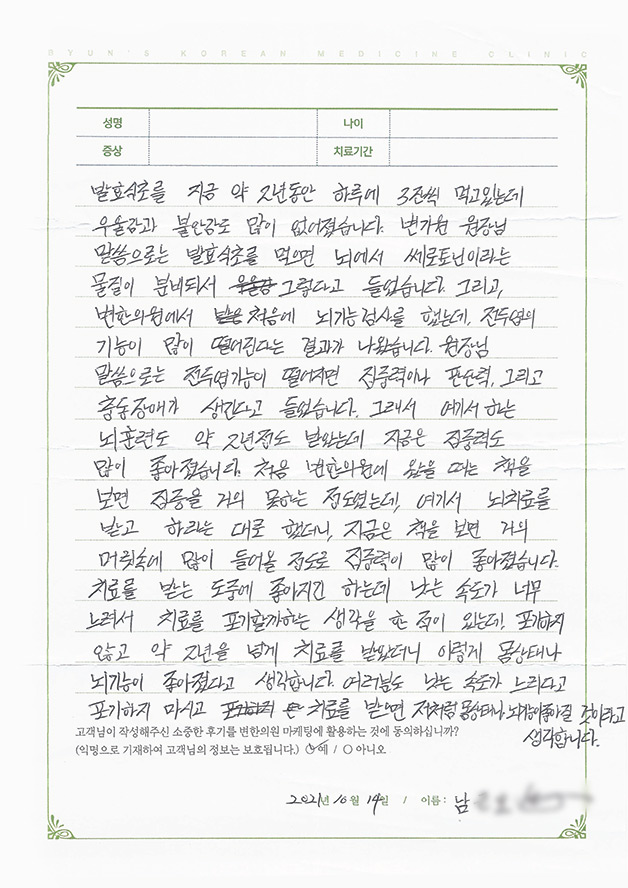 BYUN'S KOREAN MEDICINE CLINIC
성명 나이
증상 치료기간
발효식초를 지금 약 2년동안 하루에 3잔씩 먹고있는데
우울감과 불안감도 많이 없어졌습니다. 변기원 원장님
말씀으로는 발효식초를 먹으면 뇌에서 쎄로토닌이라는
물질이 분비되서 그렇다고 들었습니다. 그리고,
변한의원에서 처음에 뇌기능검사를 했는데, 전두엽의
기능이 많이 떨어진다는 결과가 나왔습니다. 원장님
말씀으로는 전두엽기능이 떨어지면 집중력이나 판단력, 그리고
충동장애가 생긴다고 들었습니다. 그래서 여기서 하는
뇌훈련도 약 2년정도 받았는데 지금은 집중력도
많이 좋아졌습니다. 처음 변한의원에 왔을 때는 책을
보면 집중을 거의 못하는 정도였는데, 여기서 뇌치료를
받고 하라는 대로 했더니, 지금은 책을 보면 거의
머릿속에 많이 들어올 정도로 집중력이 많이 좋아졌습니다.
치료를 받는 도중에 좋아지긴 하는데 낫는 속도가 너무
느려서 치료를 포기할까하는 생각을 한 적이 있는데, 포기하지
않고 약 2년을 넘게 치료를 받았더니 이렇게 몸상태나
뇌기능이 좋아졌다고 생각합니다. 여러분도 낫는 속도가 느리다고
포기하지 마시고 치료를 받으면 저처럼 몸상태나 뇌기능이좋아질 것이라고
생각합니다.
고객님이 작성해주신 소중한 후기를 변한의원 마케팅에 활용하는 것에 동의하십니까?
(익명으로 기재하여 고객님의 정보는 보호됩니다.) 예 / 아니오
2021년 10월 14일 / 이름: 남